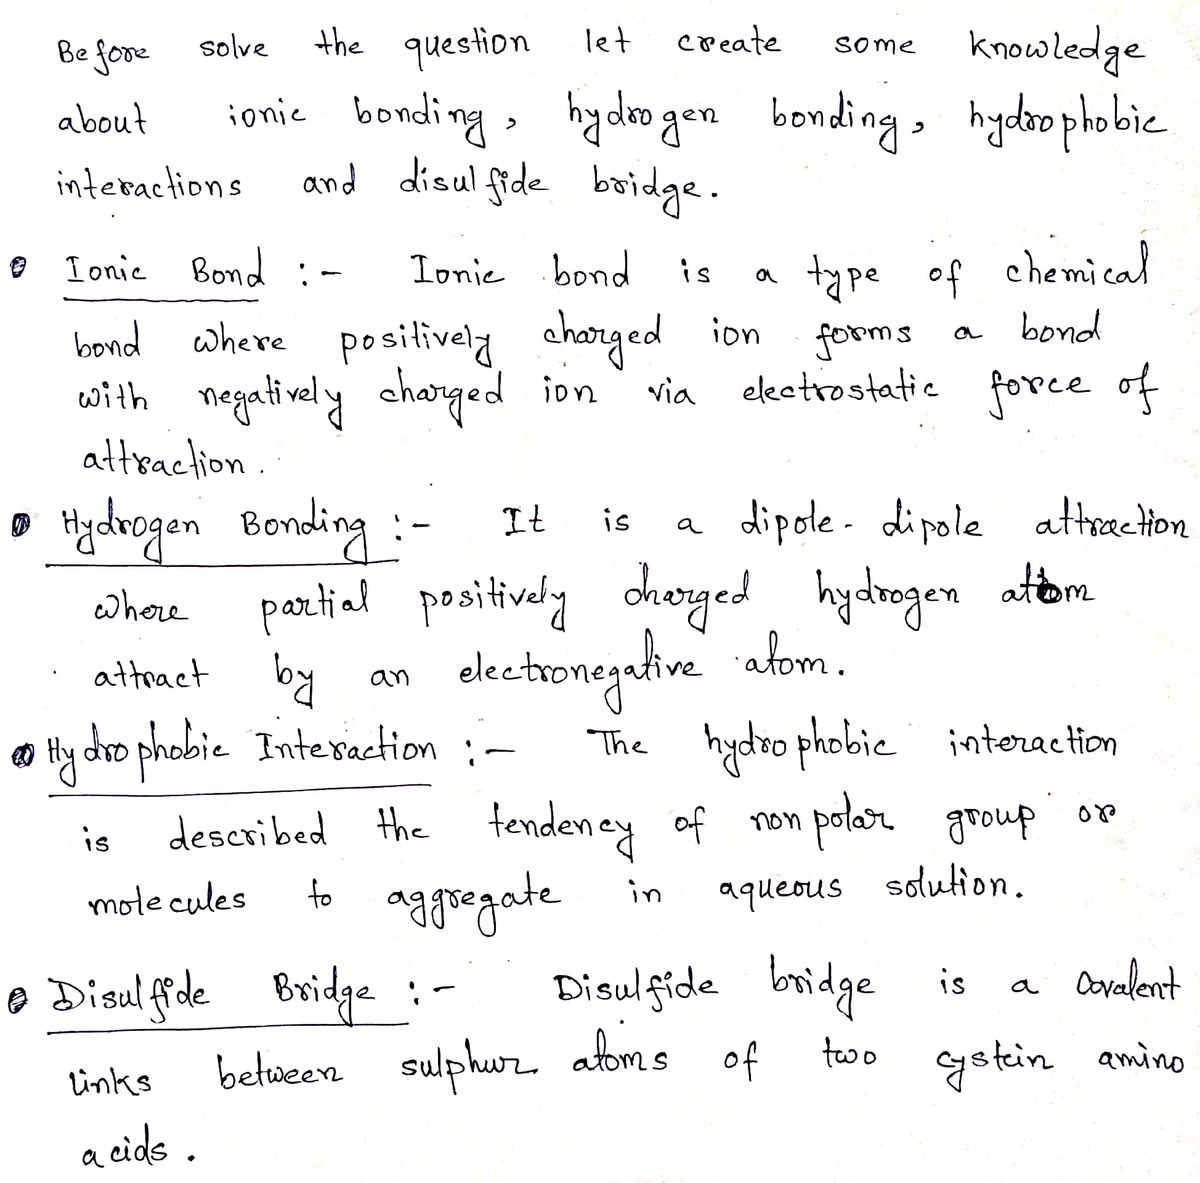 Before solve the question let create some knowledge
about ionic bonding, hydrogen bonding, hydrophobic
interactions and disulfide bridge.
Ionic Bond :- Ionic bond is a type of chemical
bond where positively charged ion forms a bond
with negatively charged ion via electrostatic force of
attraction.
Hydrogen Bonding :- It is a dipole-dipole attraction
where partial positively charged hydrogen atom
attract by an electronegative atom.
Hydrophobic Interaction :- The hydrophobic interaction
is described the tendency of nonpolar group or
molecules to aggregate in aqueous solution.
Disulfide Bridge :- Disulfide bridge is a covalent
links between sulphur atoms of two cystein amino
acids.